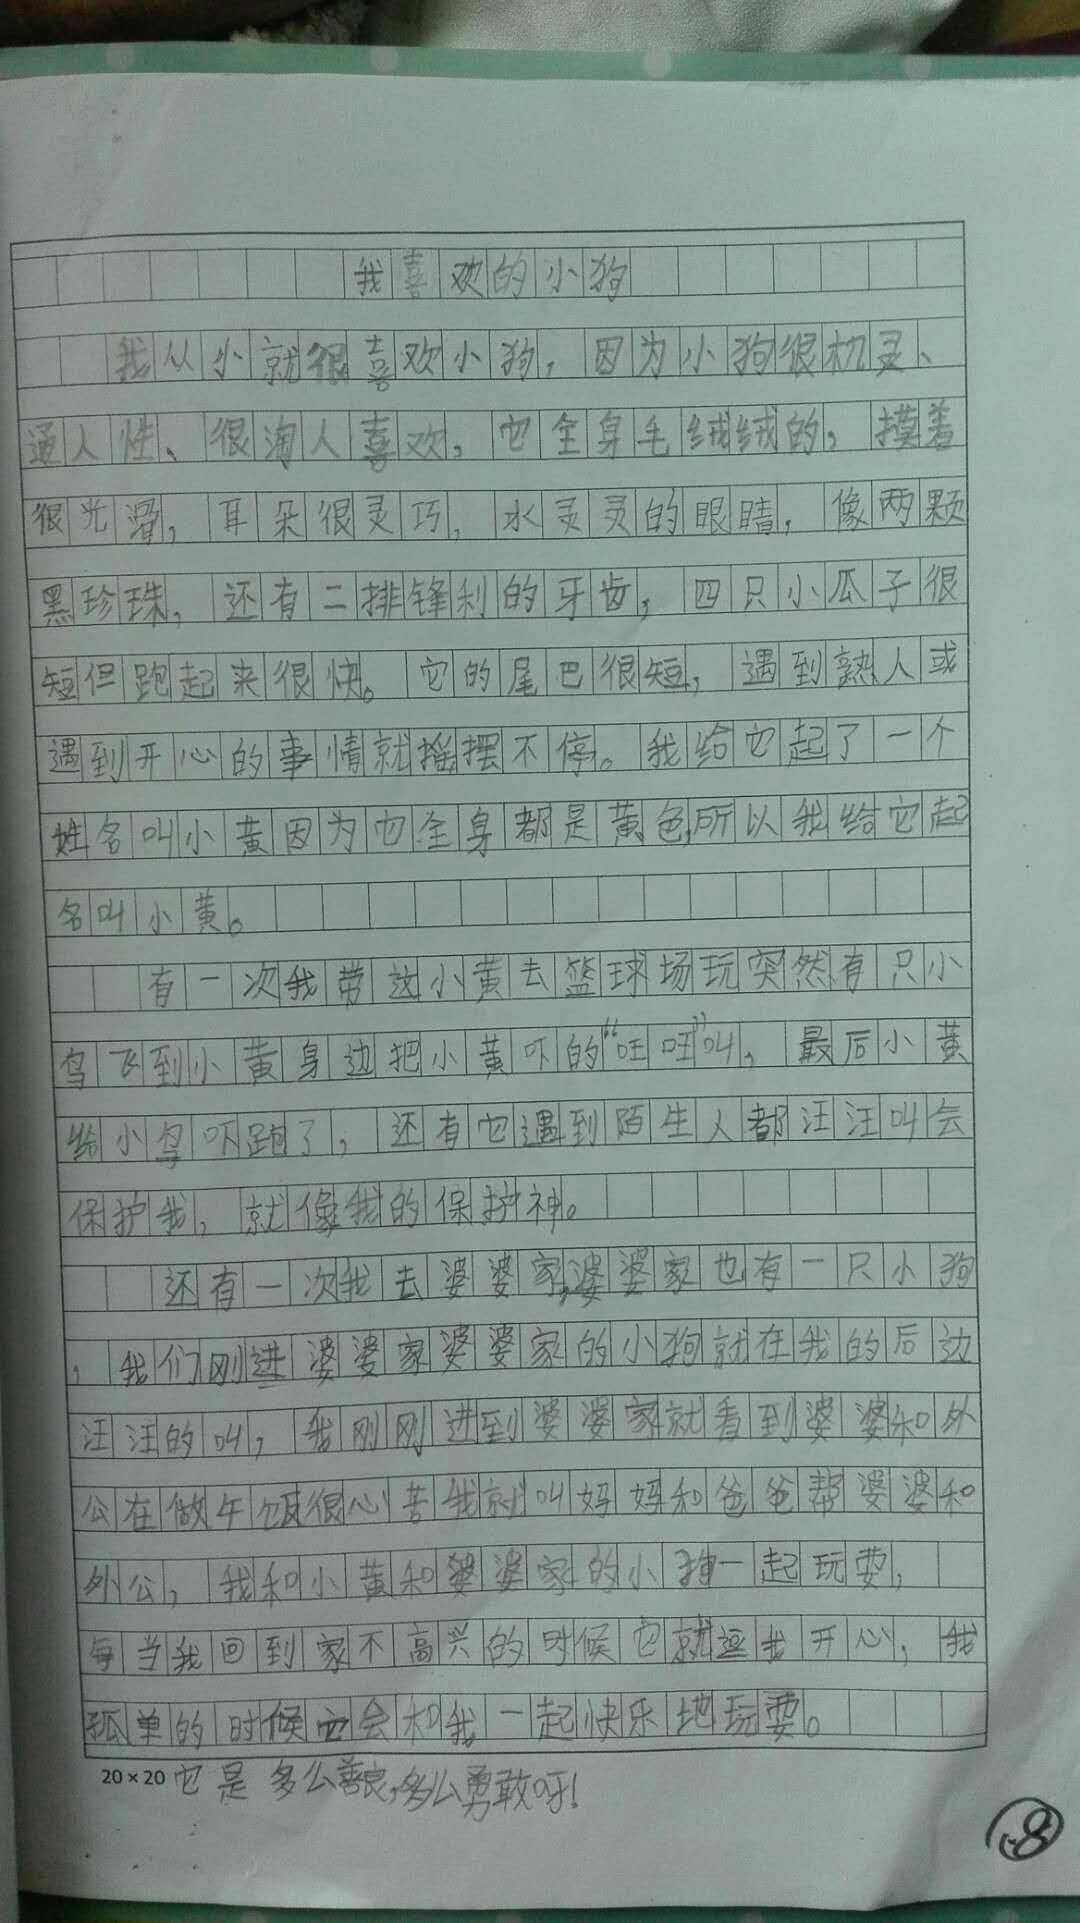 我喜欢的小狗
我从小就很喜欢小狗，因为小狗很机灵、
通人性、很淘人喜欢，它全身毛绒绒的，摸着
很光滑，耳朵很灵巧，水灵灵的眼睛，像两颗
黑珍珠，还有二排锋利的牙齿，四只小瓜子很
短但跑起来很快。它的尾巴很短，遇到熟人或
遇到开心的事情就摇摆不停。我给它起了一个
姓名叫小黄因为它全身都是黄色，所以我给它起
名叫小黄。
有一次我带这小黄去篮球场玩突然有只小
鸟飞到小黄身边把小黄吓的“旺旺”叫，最后小黄
给小鸟吓跑了，还有它遇到陌生人都汪汪叫会
保护我，就像我的保护神。
还有一次我去婆婆家，婆婆家也有一只小狗
，我们刚进婆婆家婆婆家的小狗就在我的后边
汪汪的叫，我刚刚进到婆婆家就看到婆婆和外
公在做午饭很心苦我就叫妈妈和爸爸帮婆婆和
外公，我和小黄和婆婆家的小狗一起玩耍，
每当我回到家不高兴的时候它就逗我开心，我
孤单的时候它会和我一起快乐地玩耍。
20×20 它是多么善良，多么勇敢呀！